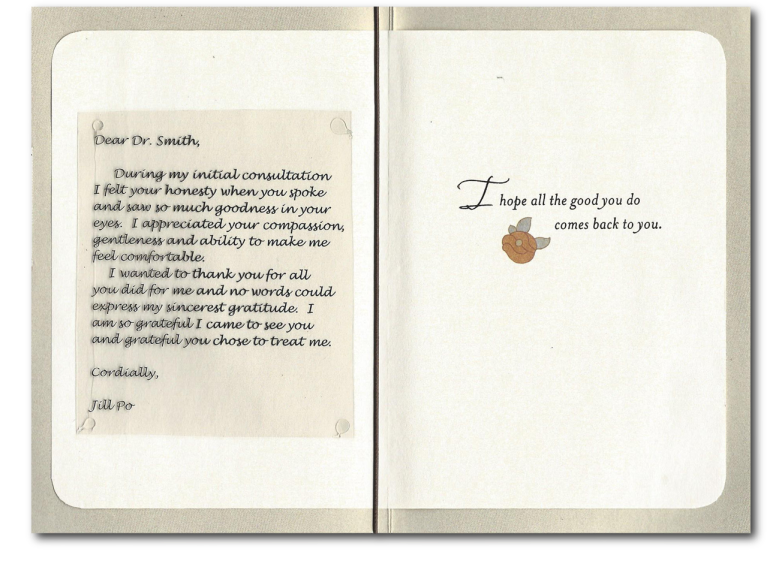 Dear Dr. Smith,
During my initial consultation
I felt your honesty when you spoke
and saw so much goodness in your
eyes. I appreciated your compassion,
gentleness and ability to make me
feel comfortable.
I wanted to thank you for all
you did for me and no words could
express my sincerest gratitude. I
am so grateful I came to see you
and grateful you chose to treat me.
Cordially,
Jill Po
I hope all the good you do
comes back to you.